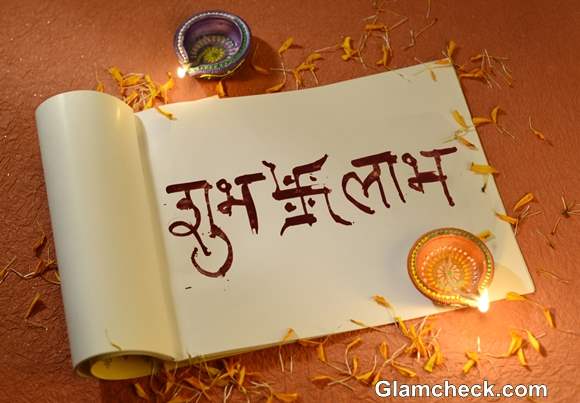 शुभ 卐 लाभ
Glamcheck.com